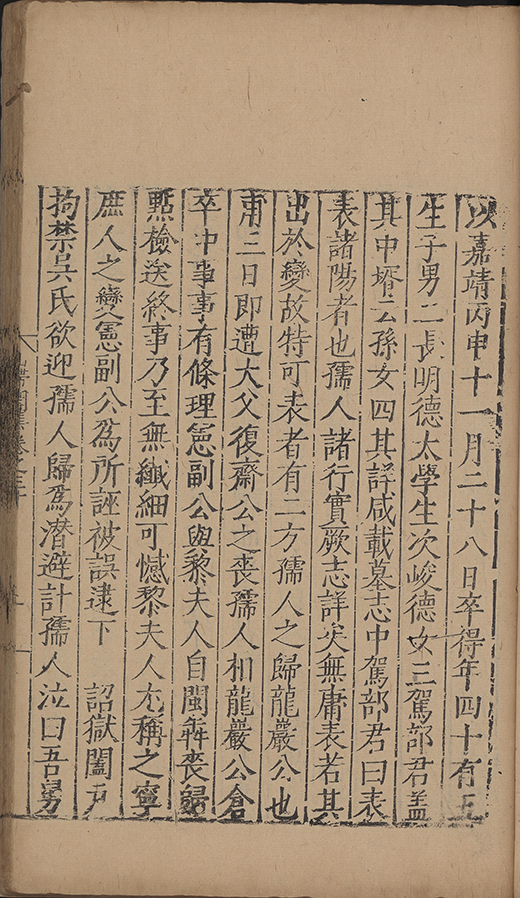 以嘉靖丙申十一月二十八日卒得年四十有五
生子男二長明德太學生次峻德女三駕部君盖
其中壻云孫女四其詳咸載墓志中駕部君曰表
表諸陽者也孺人諸行實厥志詳矣無庸表若其
出於變故特可表者有二方孺人之歸龍巖公也
甫三日即遭大父復齋公之喪孺人相龍巖公倉
卒中事事有條理憲副公與黎夫人自閩犇喪歸
㸃檢送終事乃至無纖細可憾黎夫人尤稱之寧
庶人之變憲副公為所誣被誤逮下 詔獄闔戸
拘禁吳氏欲迎孺人歸為潛避計孺人泣曰吾舅